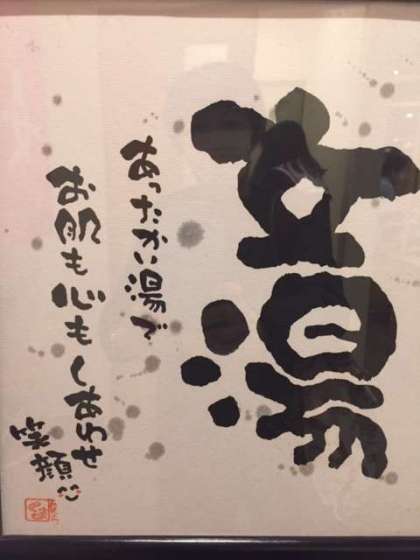 女湯
あったかい湯で
お肌も心もしあわせ
笑顔